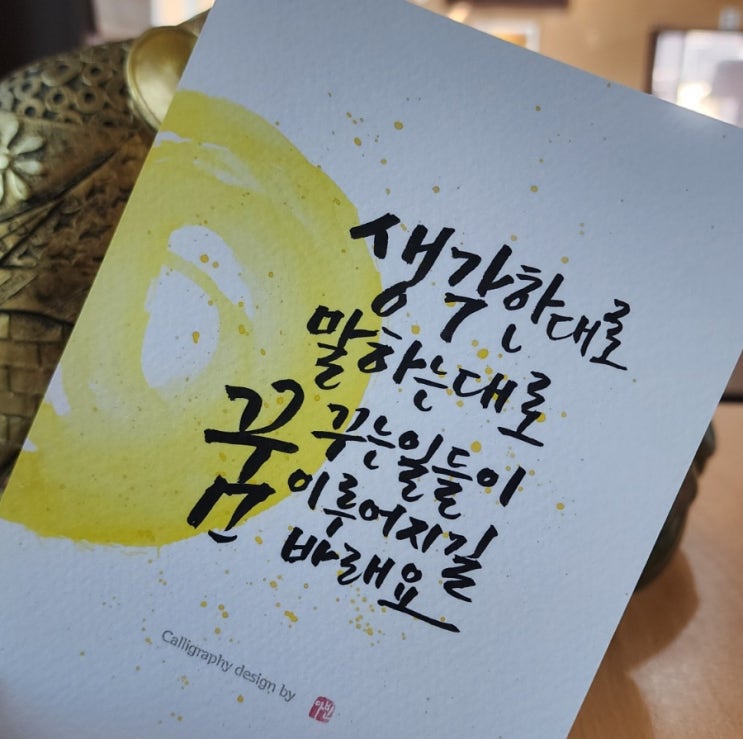 생각한대로
말하는대로
꿈 꾸는일들이
이루어지길
바래요
Calligraphy design by